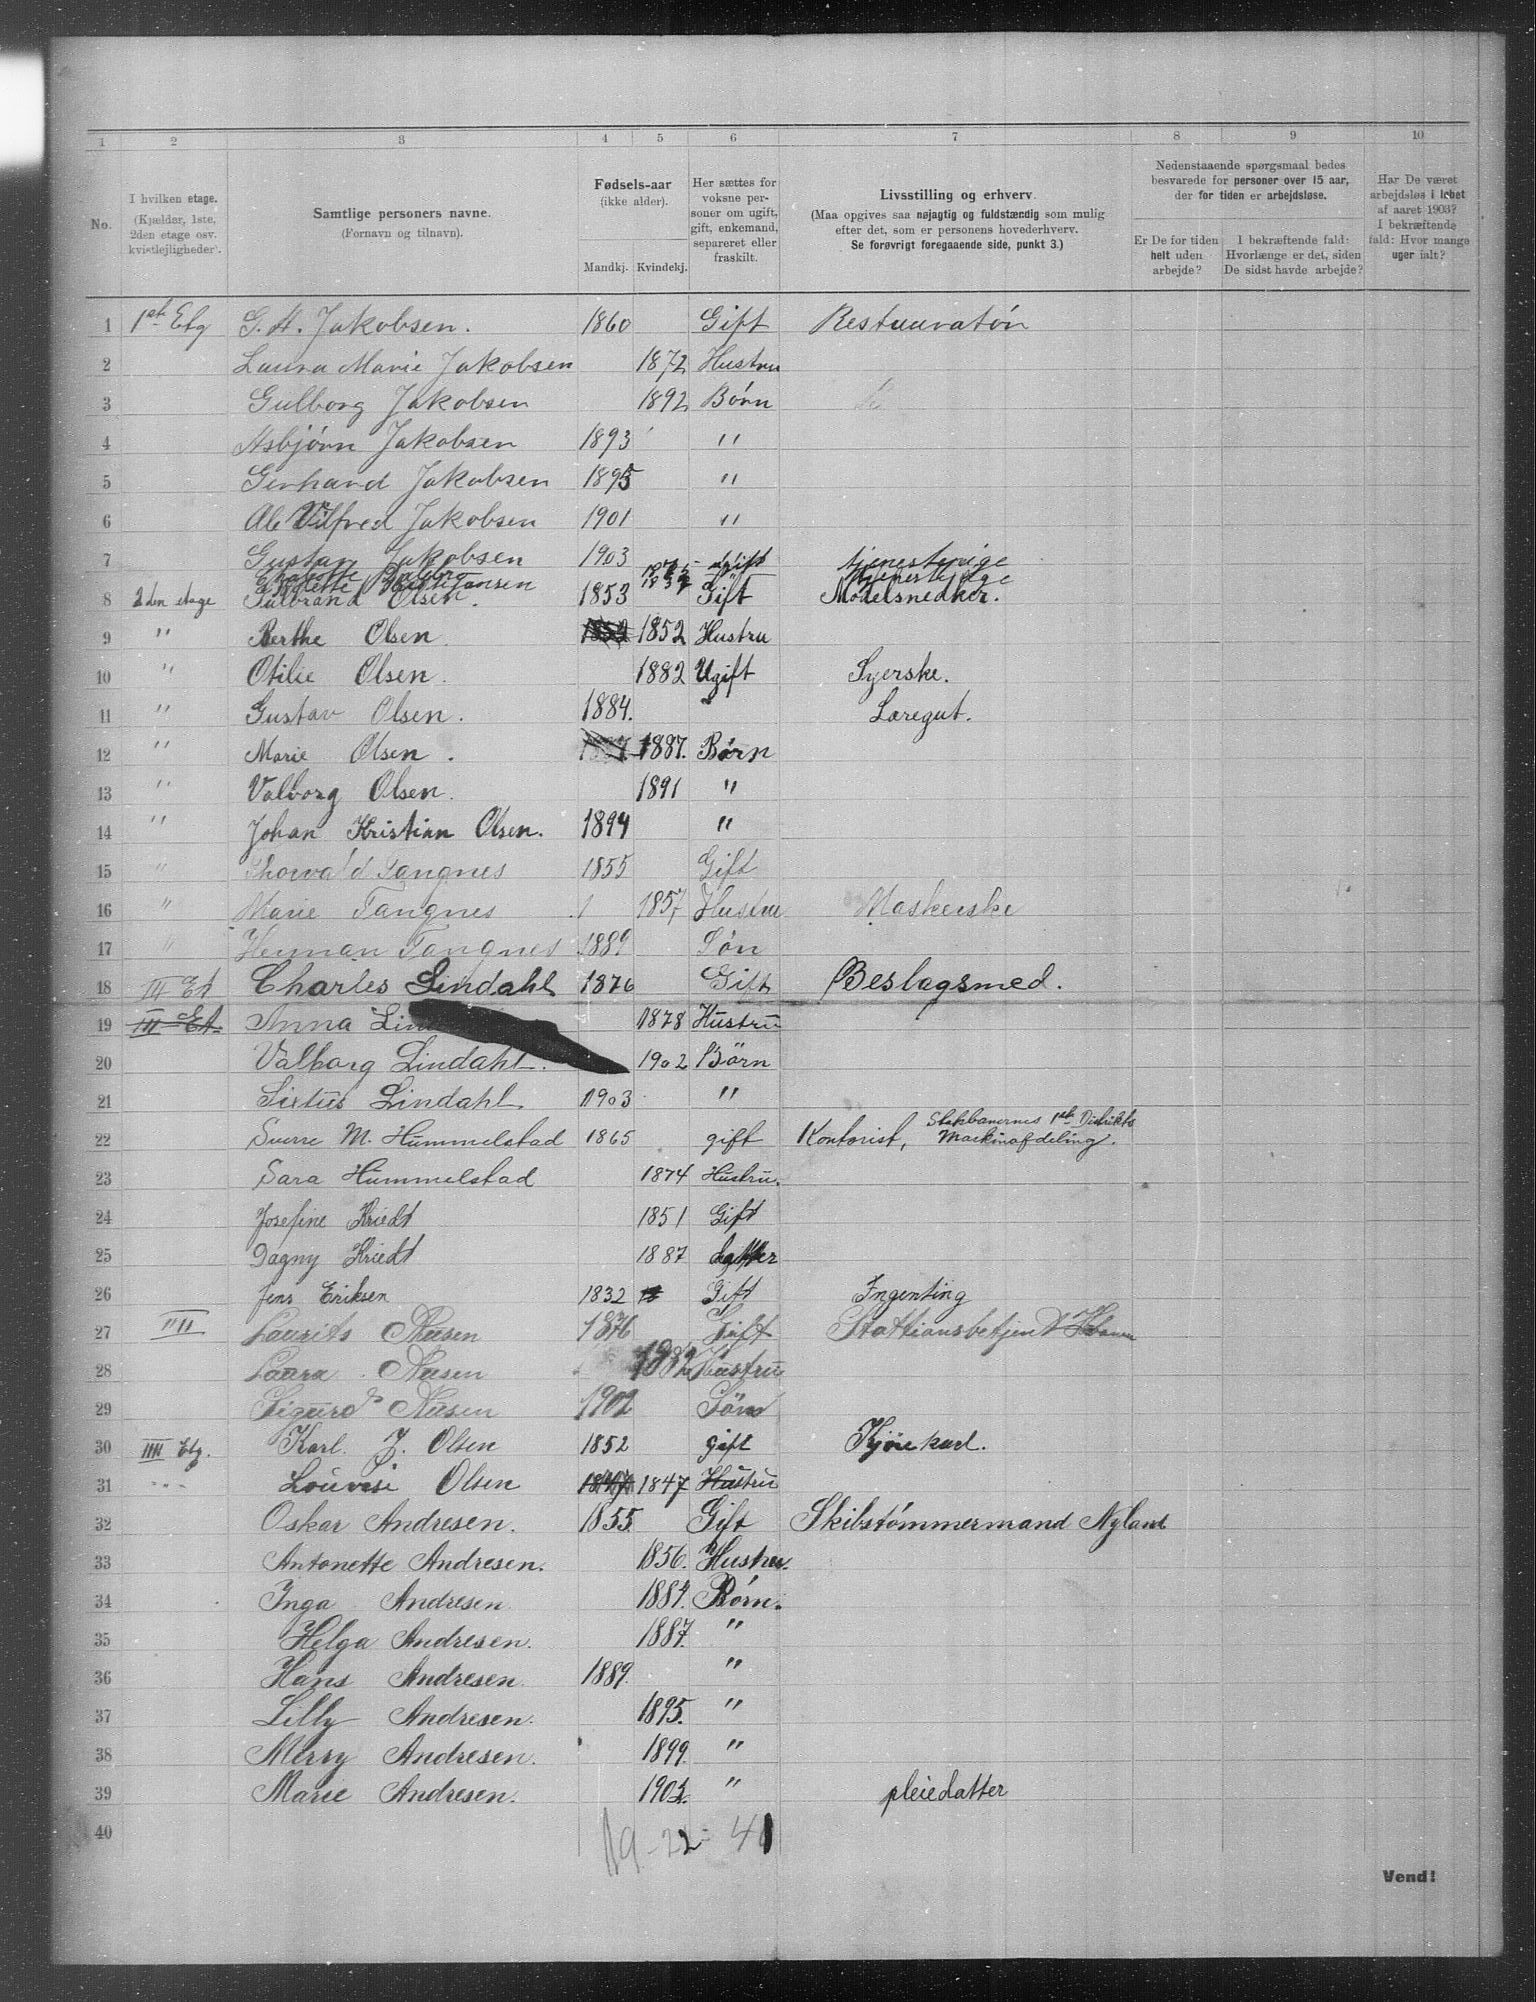 1 2 3 4 5 6 7 8 9 10
No.
I hvilken etage.
(Kjælder, 1ste,
2den etage osv.
kvistlejligheder).
Samtlige personers navne.
(Fornavn og tilnavn).
Fødsels-aar
(ikke alder).
Mandkj. Kvindekj.
Her sættes for
voksne per-
soner om ugift,
gift, enkemand,
separeret eller
fraskilt.
Livsstilling og erhverv.
(Maa opgives saa nøjagtig og fuldstændig som mulig
efter det, som er personens hovederhverv.
Se forøvrigt foregaaende side, punkt 3.)
Nedenstaaende spørgsmaal bedes
besvarede for personer over 15 aar,
der for tiden er arbejdsløse.
Er De for tiden
helt uden
arbejde?
I bekræftende fald:
Hvorlænge er det, siden
De sidst havde arbejde?
Har De været
arbejdsløs i løbet
af aaret 1903?
I bekræftende
fald: Hvor mange
uger ialt?
1 1st Etg G. H. Jakobsen. 1860 Gift Restauratør
2 Laura Marie Jakobsen 1872 Hustru
3 Gulborg Jakobsen 1892 Børn
4 Asbjørn Jakobsen 1893 "
5 Gerhard Jakobsen 1895 "
6 Vilfred Jakobsen 1901 "
7 Gustav Jakobsen 1903
ugift tjenestepige
tjenestepige
8 2den etage Gulbrand Olsen. 1853 Gift Modelsnedker.
9 " Berthe Olsen. 1852 Hustru
10 " Otilie Olsen. 1882 Ugift Syerske.
11 " Gustav Olsen. 1884. Læregut.
12 " Marie Olsen. 1887. Børn
13 " Valborg Olsen. 1891 "
14 " Johan Kristian Olsen. 1894 "
15 " Thorvald Tangnes 1855 Gift
16 " Marie Tangnes 1857 Hustru
17 " Herman Tangnes 1889 Søn
18 III Et Charles Lindahl 1876 Gift Beslagsmed.
19 III Et. Anna 1878 Hustru
20 Valborg Lindahl. 1902 Børn
21 Sixtus Lindahl 1903 "
22 Sverre M. Hummelstad 1865 gift Kontorist, Statsbanernes 1ste Distrikts
Maskinafdeling.
23 Sara Hummelstad 1874 Hustru.
24 Josefine Kriedt 1851 Gift
25 Dagny Kriedt 1887 datter
26 Jens Eriksen 1832 Gift Ingenting
27 III Laurits 1876 Gift Stattionsbetjent
28 Laura Hustru
29 Sigurd 1902 Søn
30 IIII Etg. Karl. J. Olsen 1852 gift
31 " Lovise Olsen 1847 Hustru
32 Oskar Andresen. 1855. Gift Skibstømmermand Nyland
33 Antonette Andresen. 1856. Hustru.
34 Inga Andresen 1884. Børn.
35 Helga Andresen. 1887. "
36 Hans Andresen. 1889. "
37 Lilly Andresen. 1895. "
38 Merry Andresen. 1899. "
39 Marie Andresen. "  pleiedatter
40
19-22 = 41
Vend!